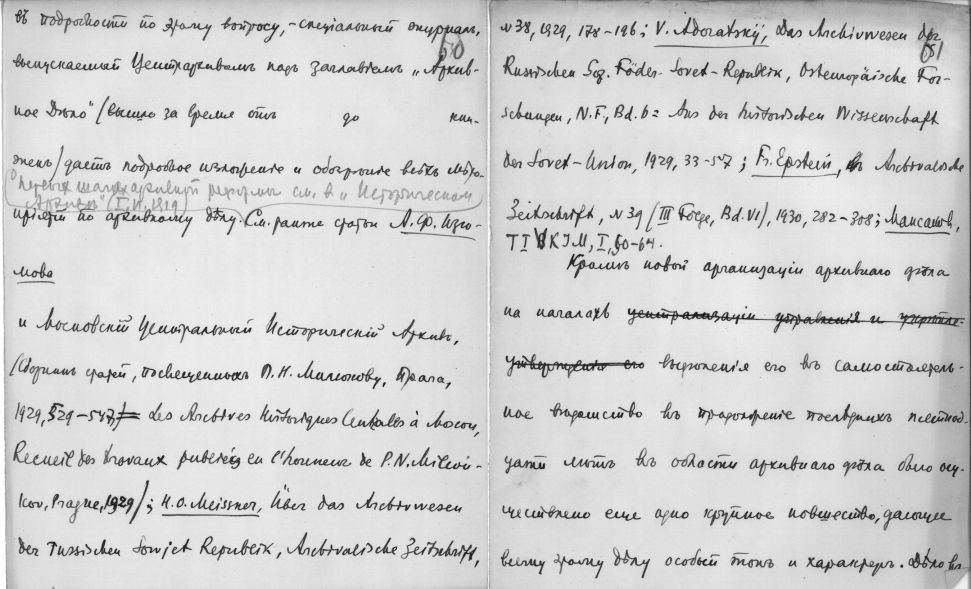 въ подробности по этому вопросу, - спецiальный журналъ,
50
выпускаемый Центрархивомъ подъ заглавiемъ „Архив-
ное Дѣло" (вышло за время отъ до кни-
жекъ) даетъ подробное изложенiе и обозрѣнiе всѣхъ мѣро-
О первых шагах архивной реформы см. в „Историческом
Архиве" (I, 1919)
прiятiй по архивному дѣлу. См. ранѣе статьи А. Ф. Изю-
мова
и Московскiй Центральный Историческiй Архивъ,
(Сборникъ статей, посвященныхъ П. Н. Милюкову, Прага,
1929, 529-547) = Les Archives Historiques Centrales à Moscou,
Recueil des travaux publiés en l'honneur de P.N. Milion-
kov, Prague, 1929); H.O. Meissner, Über das Archivwesen
der russischen Sowjet Republik, Archivalische Zeitschrift,
51
N 38, 1929, 178-196; V. Adoratskij, Das Archivwesen der
Russischen Soz. Föder. Sovet-Republik, Osteuropäische For-
schungen, N.F., Bd. 6 = Aus der historischen Wissenschaft
der Sovet-Union, 1929, 33-57; Fr. Epstein, Archivalische
Zeitschrift, N 39 (III Folge, Bd. VI), 1930, 282-308; Максаковъ,
I, 50-64.
Кромѣ новой организацiи архивнаго дѣла
на началахъ централизацiи управленiя и
выдѣленiя его въ самостоятель-
ное вѣдомство въ продолженiе послѣднихъ пятнад-
цати лѣтъ въ области архивнаго дѣла было осу-
ществлено еще одно крупное новшество, дающее
всему этому дѣлу особый тонъ и характеръ. Дѣло въ